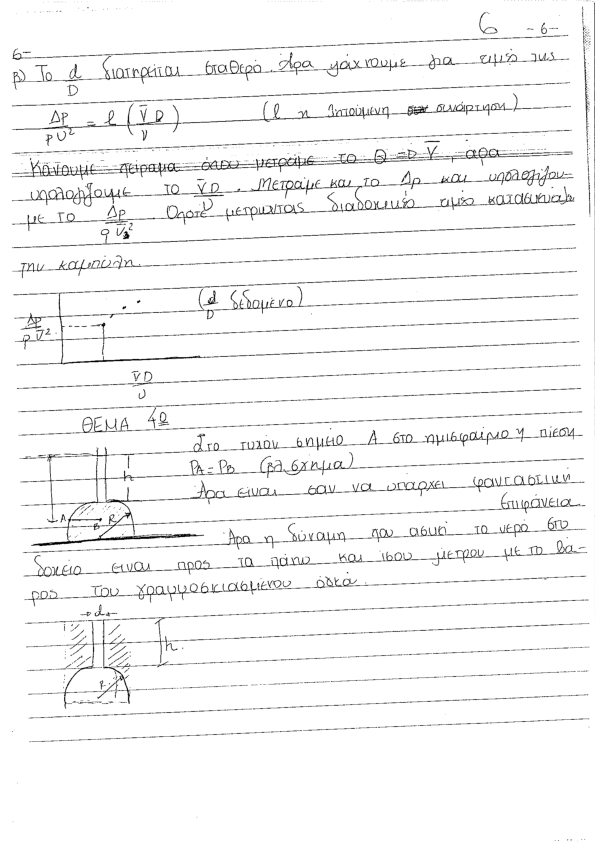 6 -6-
6-
β) Το d/D διατηρείται σταθερό. Άρα ψάχνουμε για τιμές της
Δp/ρU² = l (V̄D/ν) (l η ζητούμενη συνάρτηση)
Κάνουμε πείραμα όπου μετράμε το Q => V̄, άρα
υπολογίζουμε το V̄D/υ. Μετράμε και το Δp και υπολογίζου-
με το Δp/ρV̄². Οπότε μετρώντας διαδοχικές τιμές κατασκευάζω
την καμπύλη.
Δp/ρV̄² (d/D δεδομένο)
V̄D/υ
ΘΕΜΑ 4ο
Στο τυχόν σημείο Α στο ημισφαίριο η πίεση
PA = PB (βλ. σχήμα)
Άρα είναι σαν να υπάρχει φανταστική
επιφάνεια.
h
A B R
Άρα η δύναμη που ασκεί το νερό στο
δοχείο είναι προς τα πάνω και ίσου μέτρου με το βά-
ρος του γραμμοσκιασμένου όγκα.
d
h.
R